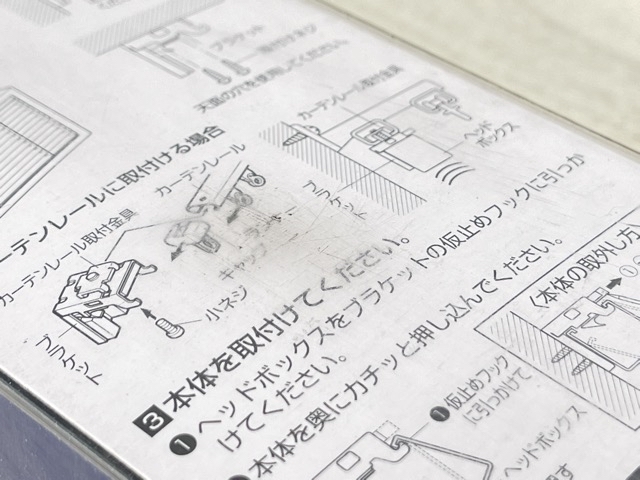 ブラケット
天面の穴を使用してください。
カーテンレールに取付ける場合
カーテンレール
カーテンレール取付金具
ランナー
キャップ
小ネジ
ブラケット
カーテンレール取付金具
ヘッド
ボックス
ブラケット
3 本体を取付けてください。
❶ ヘッドボックスをブラケットの仮止めフックに引っか
けてください。
本体を奥にカチッと押し込んでください。
❶ 仮止めフック
に引っかけて
ヘッドボックス
〈本体の取外し方